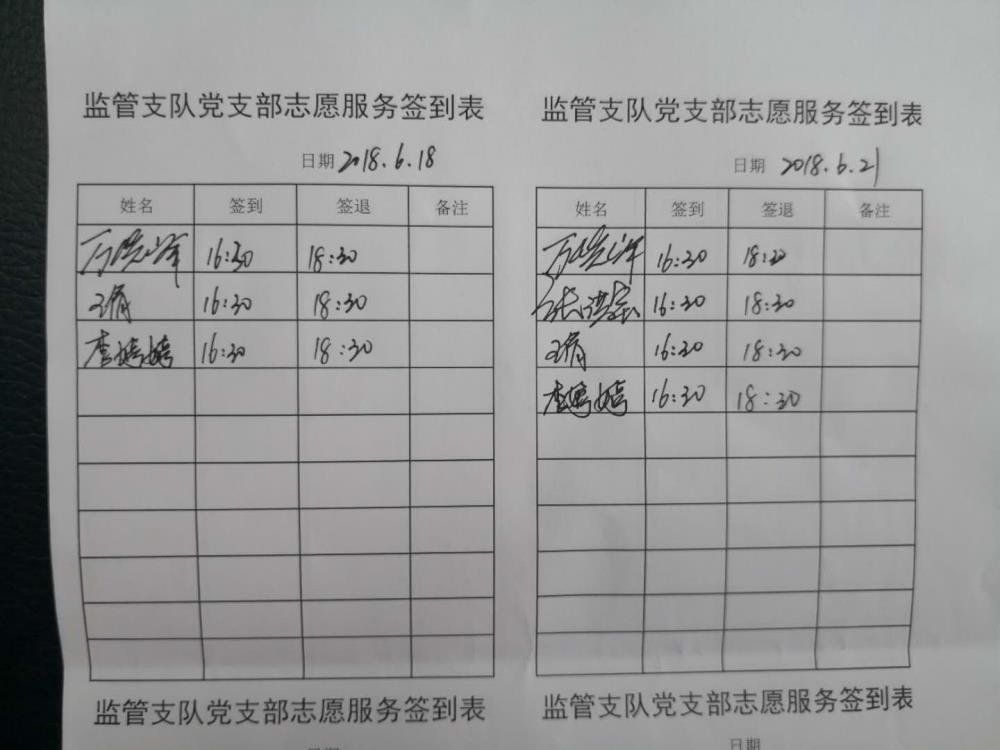 监管支队党支部志愿服务签到表
日期 2018.6.18
姓名 签到 签退 备注
16:30 18:30
王倩 16:30 18:30
李婷婷 16:30 18:30
监管支队党支部志愿服务签到表
日期 2018.6.21
姓名 签到 签退 备注
16:30 18:30
16:30 18:30
王倩 16:30 18:30
李婷婷 16:30 18:30
监管支队党支部志愿服务签到表
日期
监管支队党支部志愿服务签到表
日期